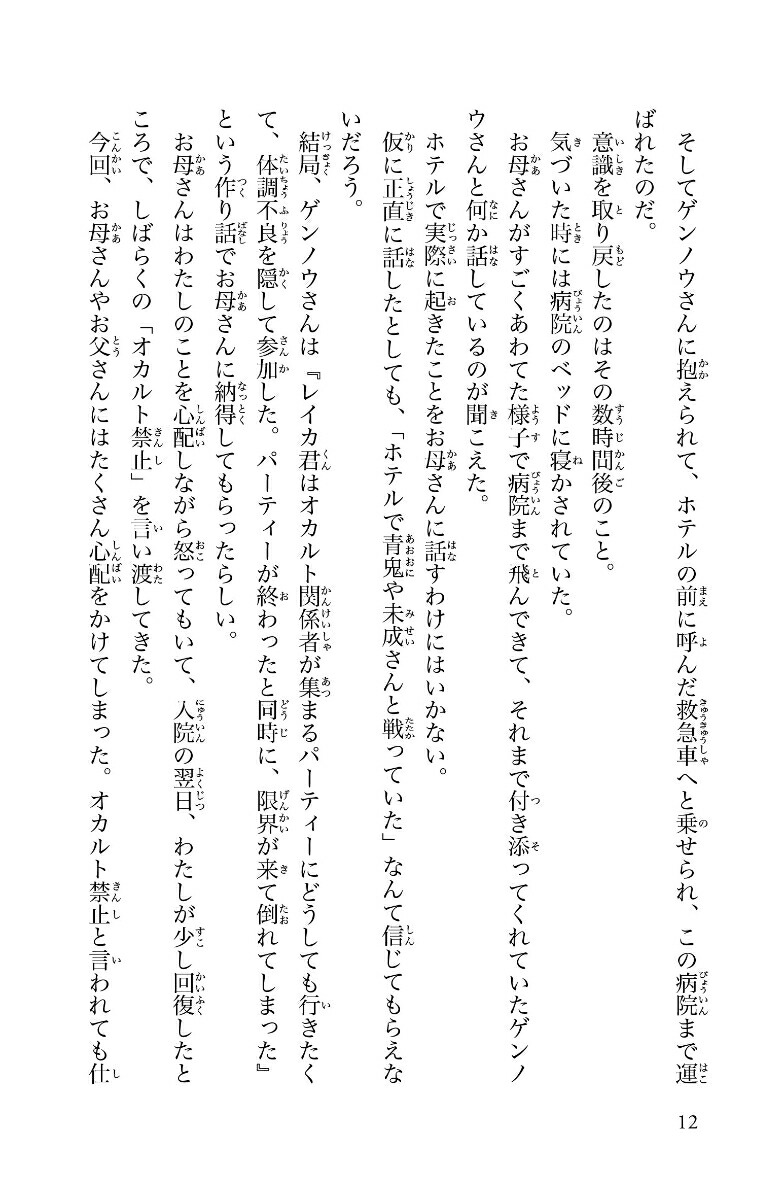 そしてゲンノウさんに抱えられて、ホテルの前に呼んだ救急車へと乗せられ、この病院まで運
ばれたのだ。
意識を取り戻したのはその数時間後のこと。
気づいた時には病院のベッドに寝かされていた。
お母さんがすごくあわてた様子で病院まで飛んできて、それまで付き添ってくれていたゲンノ
ウさんと何か話しているのが聞こえた。
ホテルで実際に起きたことをお母さんに話すわけにはいかない。
仮に正直に話したとしても、「ホテルで青鬼や未成さんと戦っていた」なんて信じてもらえな
いだろう。
結局、ゲンノウさんは『レイカ君はオカルト関係者が集まるパーティーにどうしても行きたく
て、体調不良を隠して参加した。パーティーが終わったと同時に、限界が来て倒れてしまった』
という作り話でお母さんに納得してもらったらしい。
お母さんはわたしのことを心配しながら怒ってもいて、入院の翌日、わたしが少し回復したと
ころで、しばらくの「オカルト禁止」を言い渡してきた。
今回、お母さんやお父さんにはたくさん心配をかけてしまった。オカルト禁止と言われても仕
12